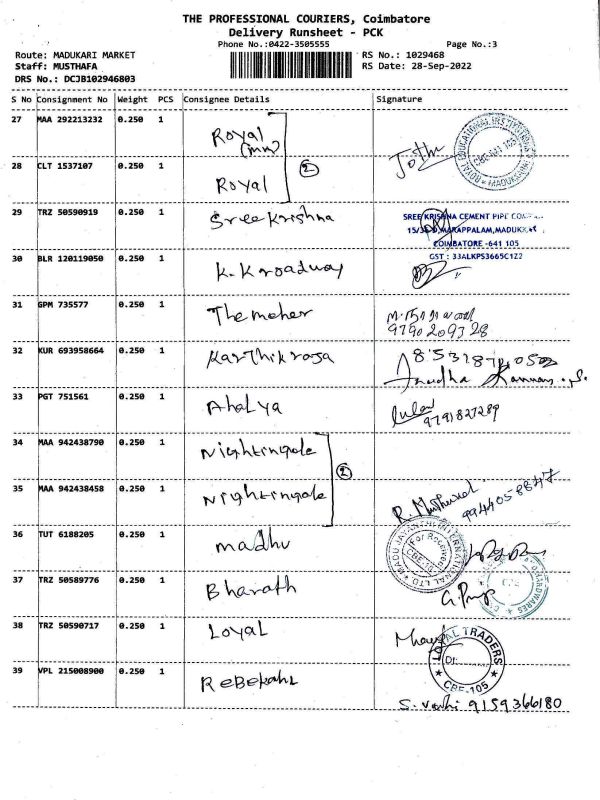 THE PROFESSIONAL COURIERS, Coimbatore
Delivery Runsheet - PCK
Phone No.:0422-3505555 Page No.:3
Route: MADUKARI MARKET RS No.: 1029468
Staff: MUSTHAFA RS Date: 28-Sep-2022
DRS No.: DCJB102946803
S No Consignment No Weight PCS Consignee Details Signature
27 MAA 292213232 0.250 1 Royal (mm) Jothi
ROYAL EDUCATIONAL INSTITUTION
MADUKKARAI
2
28 CLT 1537107 0.250 1 Royal
29 TRZ 50590919 0.250 1 Sree Krishna
SREE KRISHNA CEMENT PIPE
MARAPPALAM, MADUKKAR
COIMBATORE -641 105
GST : 33ALKPS3665C1Z2
30 BLR 120119050 0.250 1 K. K roadway
31 GPM 735577 0.250 1 The meher
9790209328
32 KUR 693958664 0.250 1 Karthik roja
Anudha
33 PGT 751561 0.250 1 Ahalya
9791827289
34 MAA 942438790 0.250 1 Nightingale
2
35 MAA 942438458 0.250 1 Nightingale
9944058847
36 TUT 6188205 0.250 1 madhu
MADU JAYANTHI INTERNATIONAL LTD
For Received
37 TRZ 50589776 0.250 1 Bharath
HARDWARES
38 TRZ 50590717 0.250 1 Loyal
LOYAL TRADERS
Dt:
CBE-105
39 VPL 215008900 0.250 1 Rebekahl
9159366180